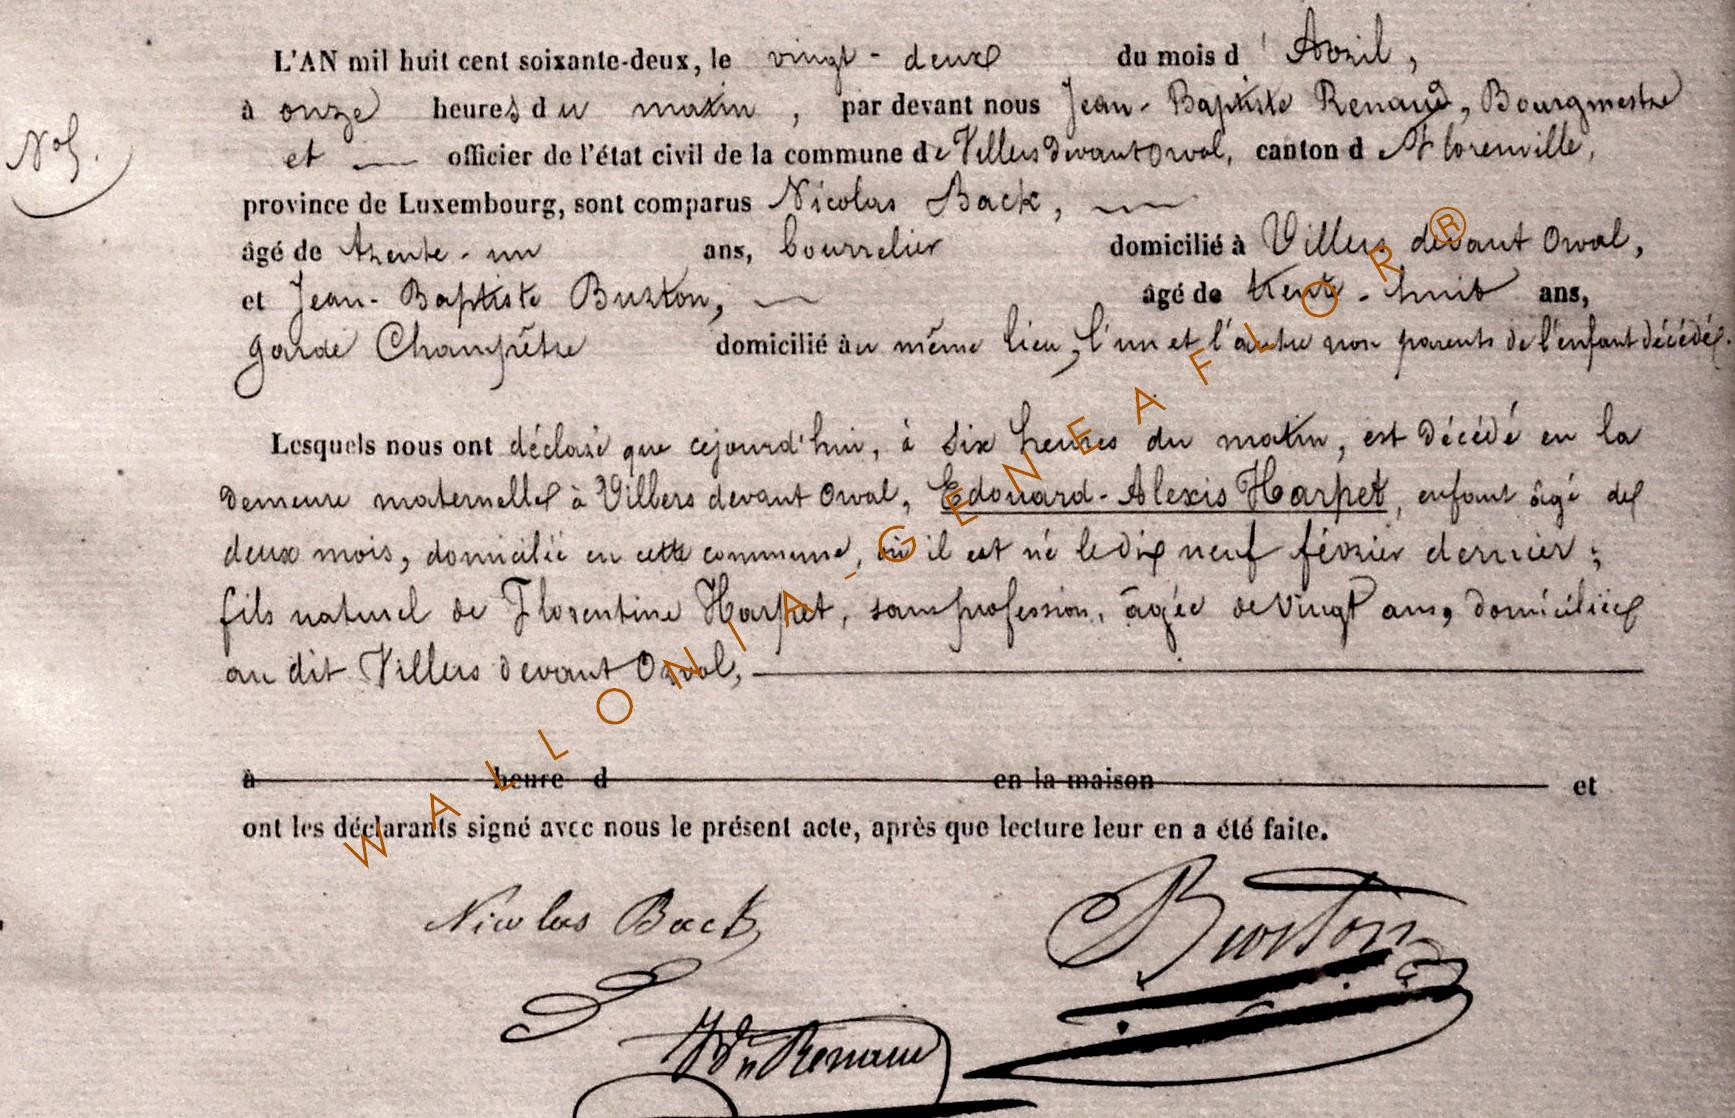 L'AN mil huit cent soixante-deux, le vingt-deux du mois d'Avril,
à onze heures du matin, par devant nous Jean-Baptiste Renaud, Bourgmestre
N°5.
et officier de l'état civil de la commune de Villers devant Orval, canton de Florenville,
province de Luxembourg, sont comparus Nicolas Back,
âgé de trente-un ans, bourrelier domicilié à Villers devant Orval,
et Jean-Baptiste Burton, âgé de trente-huit ans,
garde Champêtre domicilié au même lieu, l'un et l'autre non parents de l'enfant décédé.
Lesquels nous ont déclaré que cejourd'hui, à six heures du matin, est décédé en la
demeure maternelle à Villers devant Orval, Edouard-Alexis Harpet, enfant âgé de
deux mois, domicilié en cette commune, où il est né le dix neuf février dernier;
fils naturel de Florentine Harpet, sans profession, âgée de vingt ans, domiciliée
au dit Villers devant Orval,
à heure d en la maison et
ont les déclarants signé avec nous le présent acte, après que lecture leur en a été faite.
Nicolas Back Burton
Renaud
WALLONIA-GENEAFLOR®